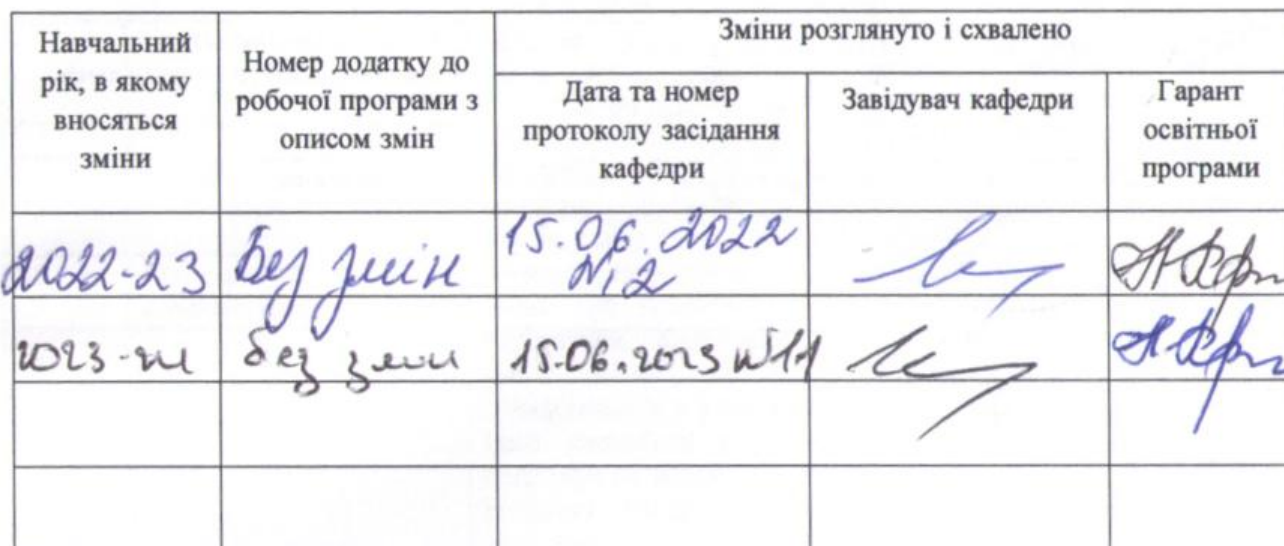 Навчальний
рік, в якому
вносяться
зміни
Номер додатку до
робочої програми з
описом змін
Зміни розглянуто і схвалено
Дата та номер
протоколу засідання
кафедри
Завідувач кафедри
Гарант
освітньої
програми
2022-23 Без змін 15.06.2022
№12
2023-24 без змін 15.06.2023 №11